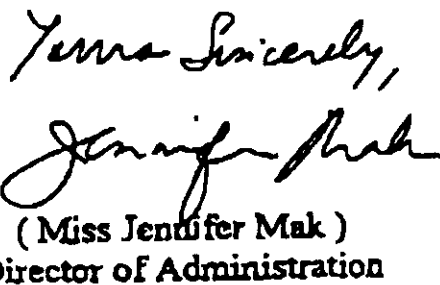 Yours Sincerely,
Jennifer Mak
( Miss Jennifer Mak )
Director of Administration